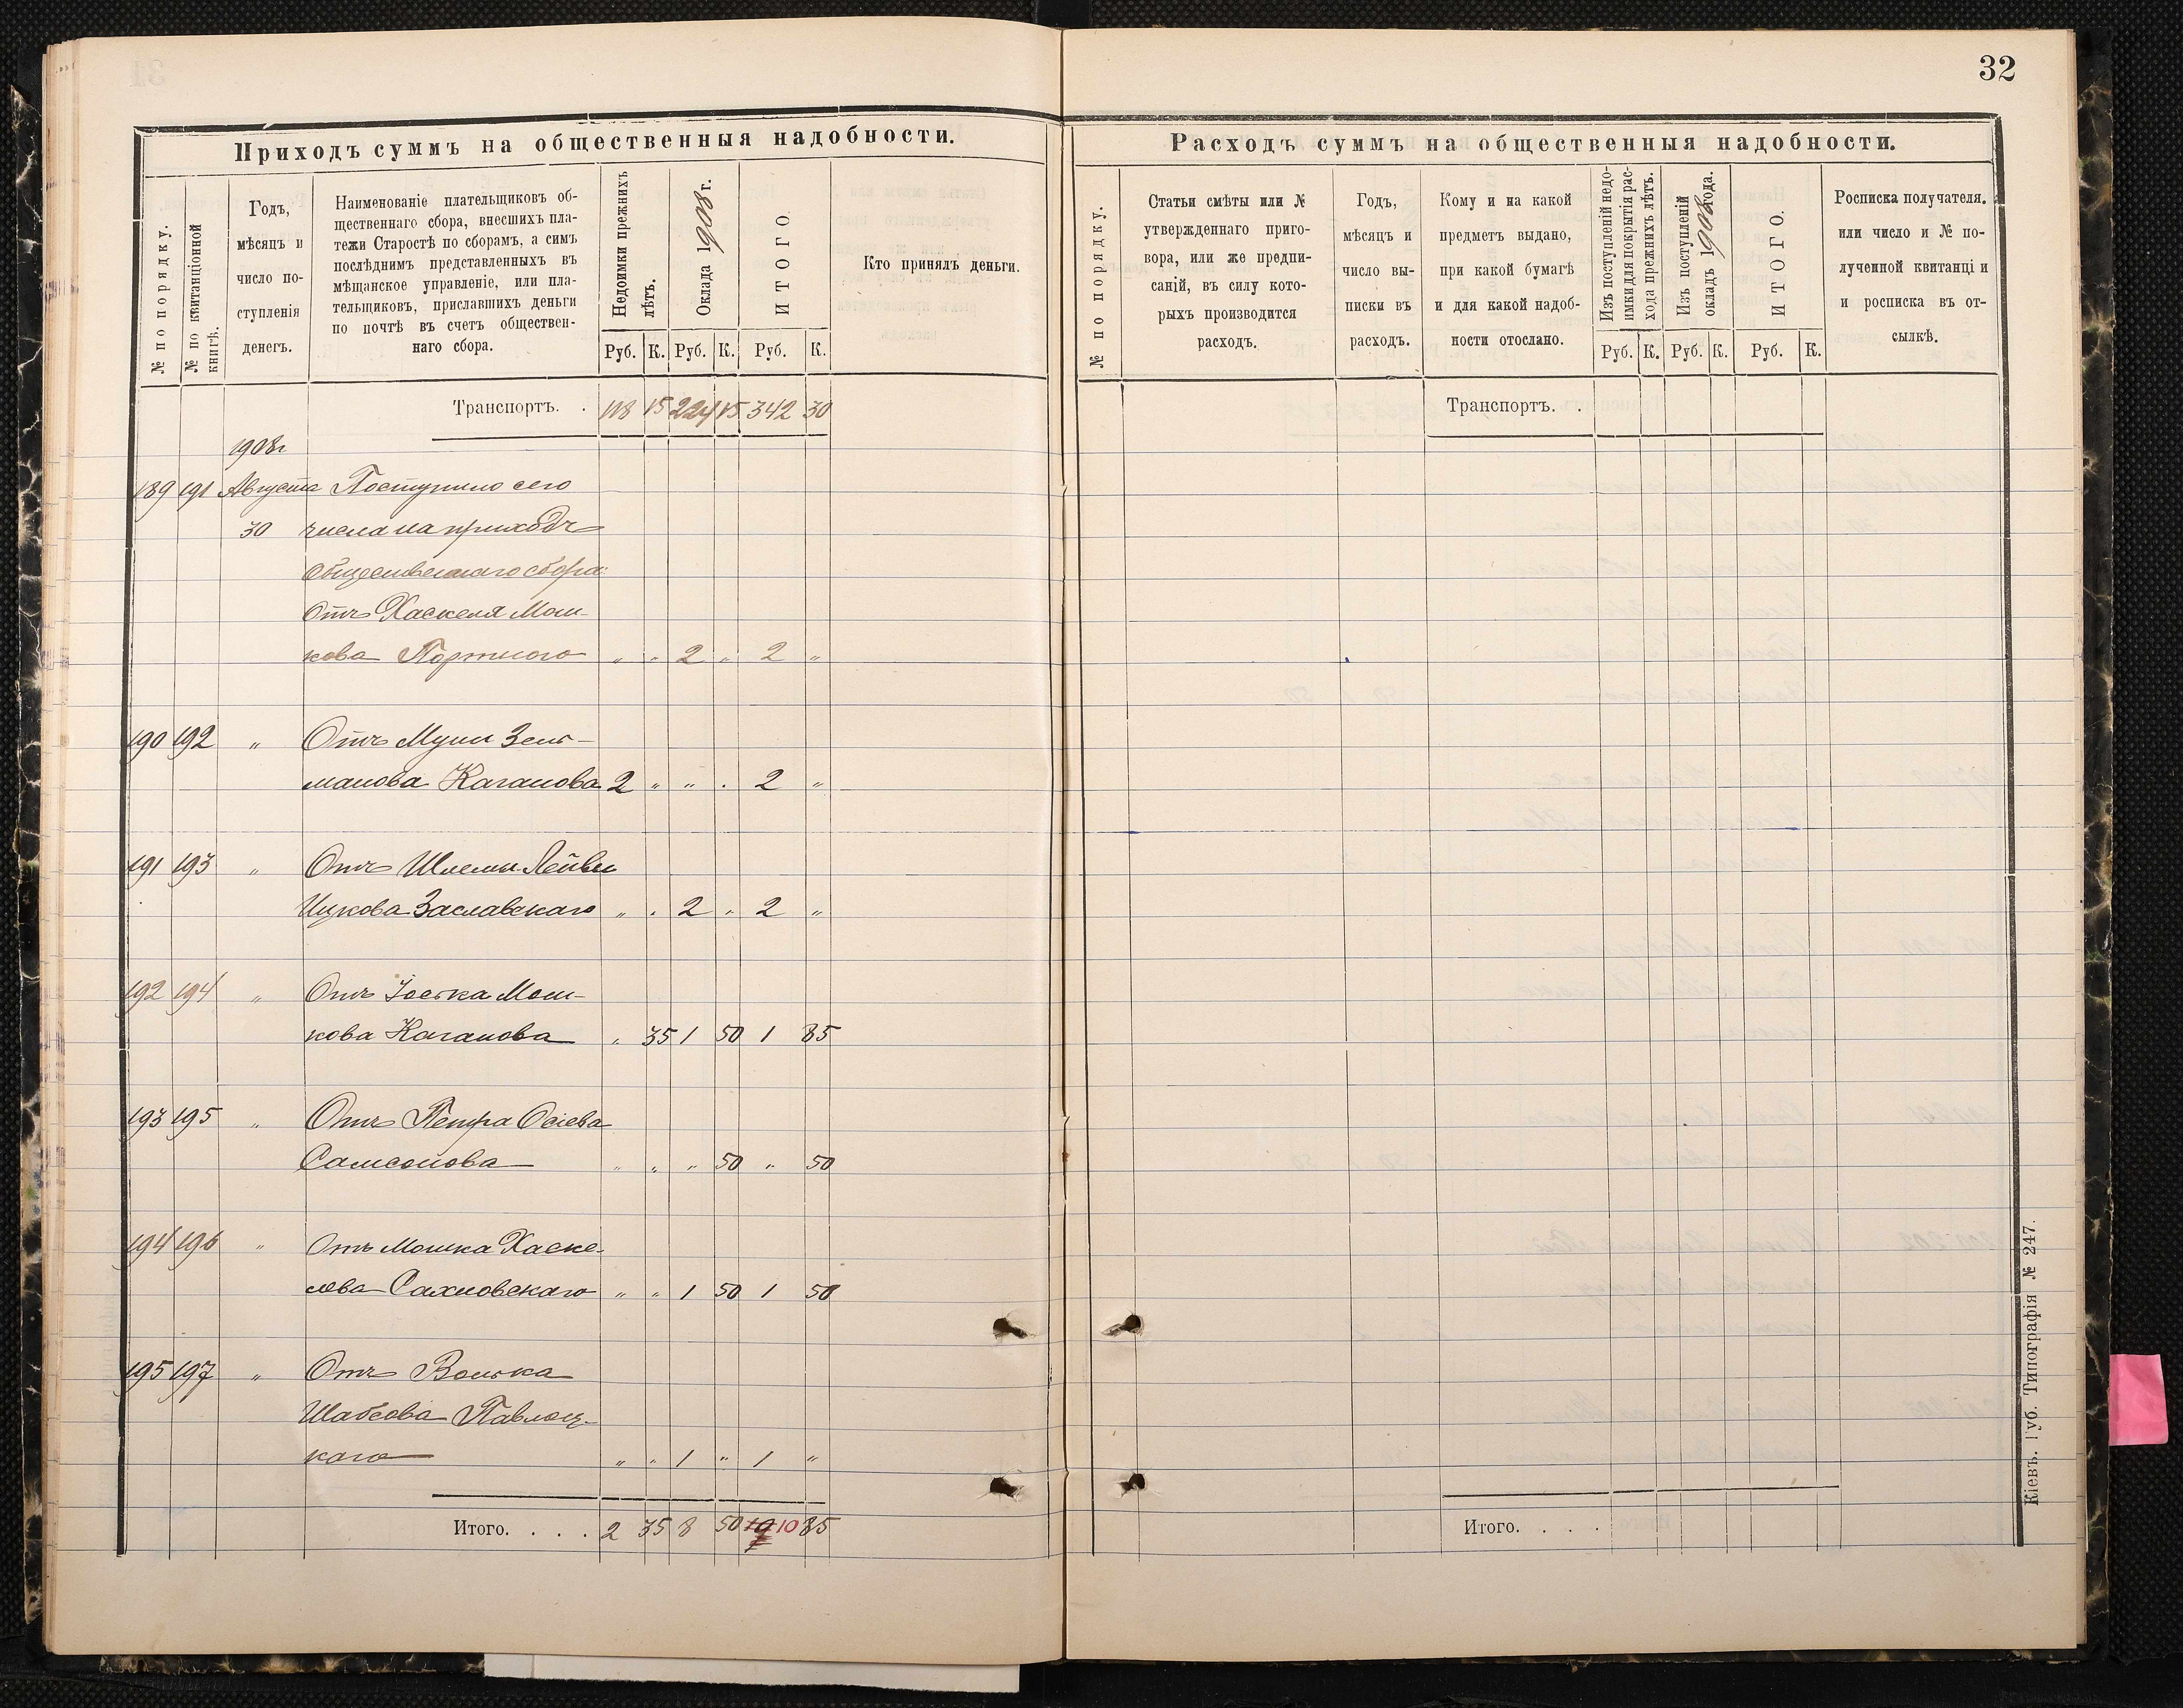 32
Приходъ суммъ на общественныя надобности.
№ по порядку.
№ по квитанціонной книгѣ.
Годъ,
мѣсяцъ и
число по-
ступленія
денегъ.
Наименованіе плательщиковъ об-
щественнаго сбора, внесшихъ пла-
тежи Старостѣ по сборамъ, а симъ
послѣднимъ представленныхъ въ
мѣщанское управленіе, или пла-
тельщиковъ, приславшихъ деньги
по почтѣ въ счетъ обществен-
наго сбора.
Недоимки прежнихъ
лѣтъ.
Оклада 1908 г.
ИТОГО.
Кто принялъ деньги.
Руб. К. Руб. К. Руб. К.
Транспортъ. . 118 15 224 15 342 30
1908г
189 191 Августа Поступило сего
30 числа на приходъ
Общественнаго сбора:
Отъ Хаскеля Мош-
кова Портного " " 2 " 2 "
190 192 " Отъ Муни Зель-
манова Каганова 2 " " . 2 "
191 193 " Отъ Шлемы-Лейви
Ицкова Заславскаго " . 2 " 2 "
192 194 " Отъ Іоська Мош-
кова Каганова " 35 1 50 1 85
193 195 " Отъ Петра Осіева
Самсонова " " " 50 " 50
194 196 " Отъ Мошка Хаске-
лева Сахновскаго " " 1 50 1 50
195 197 " Отъ Волька
Шабсова Павлоц-
каго " " 1 " 1 "
Итого. . . . 2 35 8 50 10 85
Расходъ суммъ на общественныя надобности.
№ по порядку.
Статьи смѣты или №
утвержденнаго приго-
вора, или же предпи-
саній, въ силу кото-
рыхъ производится
расходъ.
Годъ,
мѣсяцъ и
число вы-
писки въ
расходъ.
Кому и на какой
предметъ выдано,
при какой бумагѣ
и для какой надоб-
ности отослано.
Изъ поступленій недо-
имки для покрытія рас-
хода прежнихъ лѣтъ.
Изъ поступленій
окладъ 1908 года.
ИТОГО.
Росписка получателя,
или число и № по-
лученной квитанціи
и росписка въ от-
сылкѣ.
Руб. К. Руб. К. Руб. К.
Транспортъ. .
Итого. . . .
Кіевъ. Губ. Типографія № 247.